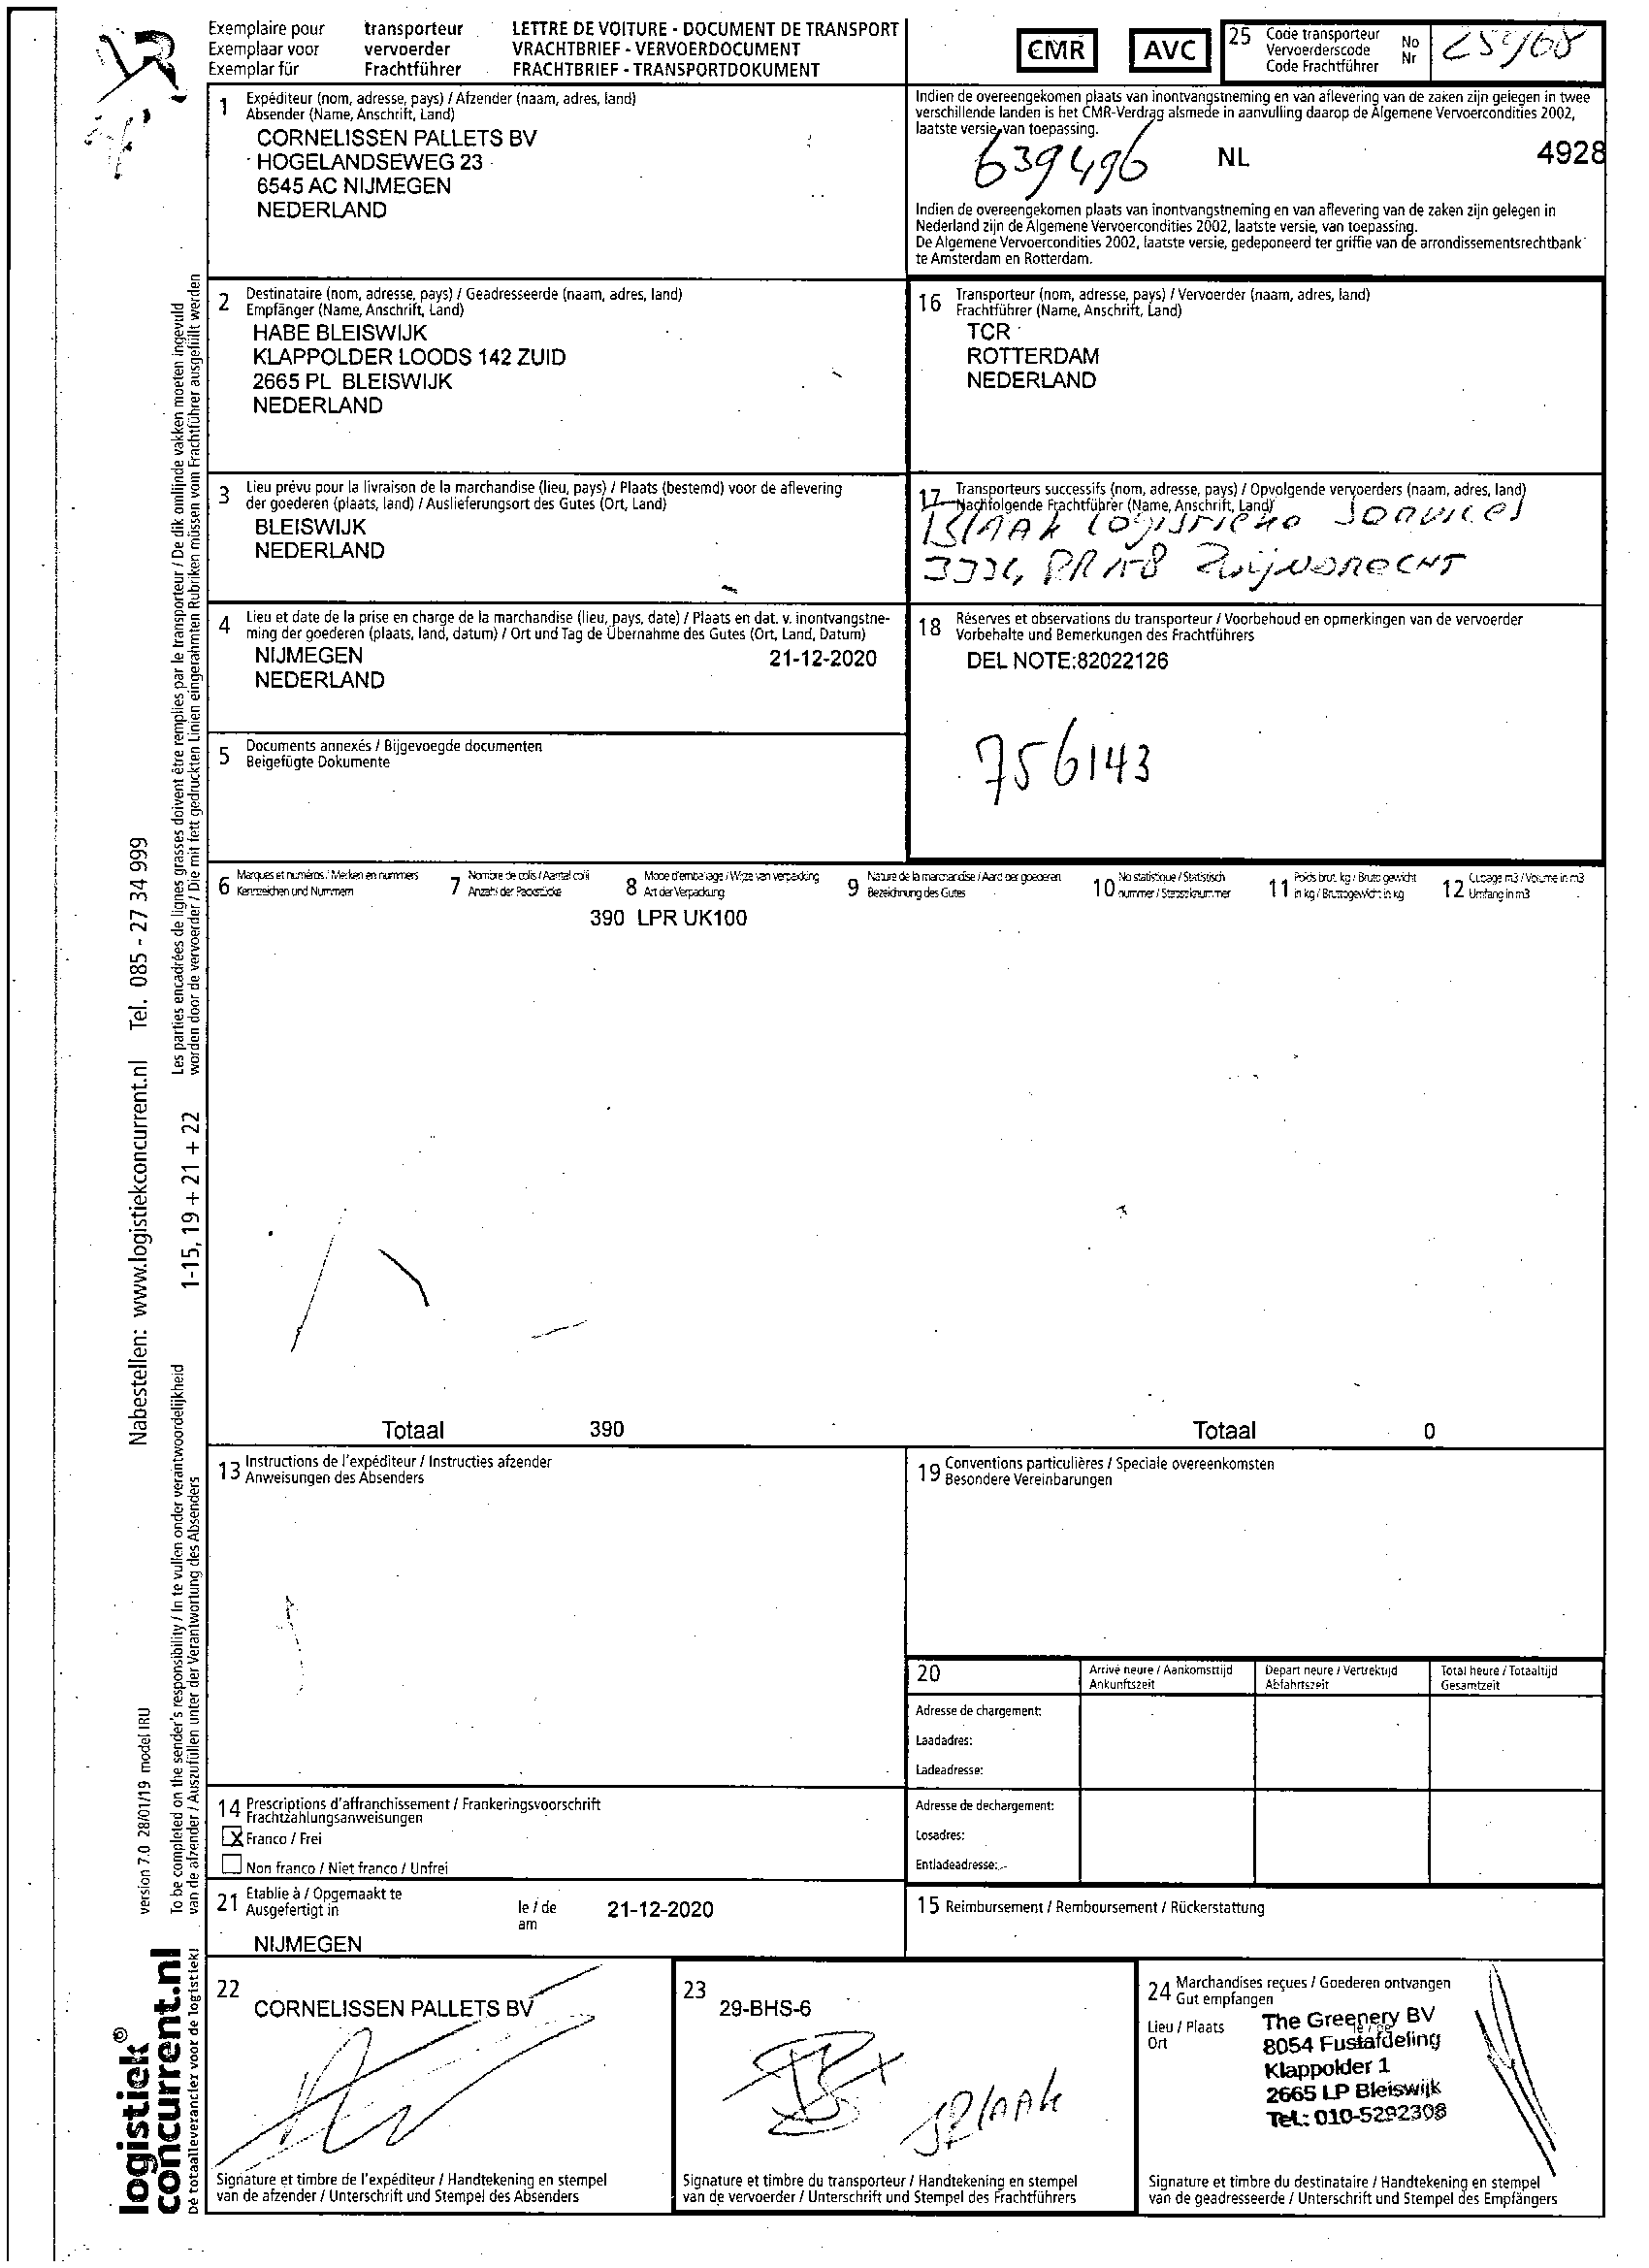 Exemplaire pour transporteur
Exemplaar voor vervoerder
Exemplar für Frachtführer
LETTRE DE VOITURE - DOCUMENT DE TRANSPORT
VRACHTBRIEF - VERVOERDOCUMENT
FRACHTBRIEF - TRANSPORTDOKUMENT
CMR
AVC
25 Code transporteur
Vervoerderscode
Code Frachtführer
No
Nr
1 Expéditeur (nom, adresse, pays) / Afzender (naam, adres, land)
Absender (Name, Anschrift, Land)
CORNELISSEN PALLETS BV
HOGELANDSEWEG 23
6545 AC NIJMEGEN
NEDERLAND
Indien de overeengekomen plaats van inontvangstneming en van aflevering van de zaken zijn gelegen in twee
verschillende landen is het CMR-Verdrag alsmede in aanvulling daarop de Algemene Vervoercondities 2002,
laatste versie, van toepassing.
639496
NL 4928
Indien de overeengekomen plaats van inontvangstneming en van aflevering van de zaken zijn gelegen in
Nederland zijn de Algemene Vervoercondities 2002, laatste versie, van toepassing.
De Algemene Vervoercondities 2002, laatste versie, gedeponeerd ter griffie van de arrondissementsrechtbank
te Amsterdam en Rotterdam.
2 Destinataire (nom, adresse, pays) / Geadresseerde (naam, adres, land)
Empfänger (Name, Anschrift, Land)
HABE BLEISWIJK
KLAPPOLDER LOODS 142 ZUID
2665 PL BLEISWIJK
NEDERLAND
16 Transporteur (nom, adresse, pays) / Vervoerder (naam, adres, land)
Frachtführer (Name, Anschrift, Land)
TCR
ROTTERDAM
NEDERLAND
3 Lieu prévu pour la livraison de la marchandise (lieu, pays) / Plaats (bestemd) voor de aflevering
der goederen (plaats, land) / Auslieferungsort des Gutes (Ort, Land)
BLEISWIJK
NEDERLAND
17 Transporteurs successifs (nom, adresse, pays) / Opvolgende vervoerders (naam, adres, land)
Nachfolgende Frachtführer (Name, Anschrift, Land)
4 Lieu et date de la prise en charge de la marchandise (lieu, pays, date) / Plaats en dat. v. inontvangstne-
ming der goederen (plaats, land, datum) / Ort und Tag de Übernahme des Gutes (Ort, Land, Datum)
NIJMEGEN 21-12-2020
NEDERLAND
18 Réserves et observations du transporteur / Voorbehoud en opmerkingen van de vervoerder
Vorbehalte und Bemerkungen des Frachtführers
DEL NOTE:82022126
756143
5 Documents annexés / Bijgevoegde documenten
Beigefügte Dokumente
6 Marques et numéros / Merken en nummers
Kennzeichen und Nummern
7 Nombre de colis / Aantal colli
Anzahl der Packstücke
8 Mode d'emballage / Wijze van verpakking
Art der Verpackung
9 Nature de la marchandise / Aard der goederen
Bezeichnung des Gutes
10 No statistique / Statistisch
nummer / Statistiknummer
11 Poids brut. kg / Bruto gewicht
in kg / Bruttogewicht in kg
12 Cubage m3 / Volume in m3
Umfang in m3
390 LPR UK100
Totaal 390 Totaal 0
13 Instructions de l'expéditeur / Instructies afzender
Anweisungen des Absenders
19 Conventions particulières / Speciale overeenkomsten
Besondere Vereinbarungen
20
Arrivé heure / Aankomsttijd
Ankunftszeit
Depart heure / Vertrektijd
Abfahrtszeit
Total heure / Totaaltijd
Gesamtzeit
Adresse de chargement:
Laadadres:
Ladeadresse:
Adresse de dechargement:
Losadres:
Entladeadresse:
14 Prescriptions d'affranchissement / Frankeringsvoorschrift
Frachtzahlungsanweisungen
X Franco / Frei
Non franco / Niet franco / Unfrei
21 Etablie à / Opgemaakt te
Ausgefertigt in
le / de
am
21-12-2020
NIJMEGEN
15 Reimbursement / Remboursement / Rückerstattung
22
CORNELISSEN PALLETS BV
Signature et timbre de l'expéditeur / Handtekening en stempel
van de afzender / Unterschrift und Stempel des Absenders
23
29-BHS-6
Signature et timbre du transporteur / Handtekening en stempel
van de vervoerder / Unterschrift und Stempel des Frachtführers
24 Marchandises reçues / Goederen ontvangen
Gut empfangen
Lieu / Plaats
Ort
The Greenery BV
8054 Fustafdeling
Klappolder 1
2665 LP Bleiswijk
Tel.: 010-5292308
Signature et timbre du destinataire / Handtekening en stempel
van de geadresseerde / Unterschrift und Stempel des Empfängers
Les parties encadrées de lignes grasses doivent être remplies par le transporteur / De dik omlijnde vakken moeten ingevuld
worden door de vervoerder / Die mit fett gedruckten Linien eingerahmten Rubriken müssen vom Frachtführer ausgefüllt werden
1-15, 19 + 21 + 22
To be completed on the sender's responsibility / In te vullen onder verantwoordelijkheid
van de afzender / Auszufüllen unter der Verantwortung des Absenders
Nabestellen: www.logistiekconcurrent.nl Tel. 085 - 27 34 999
version 7.0 28/01/19 model IRU
logistiek®
concurrent.nl
Dé totaalleverancier voor de logistiek!